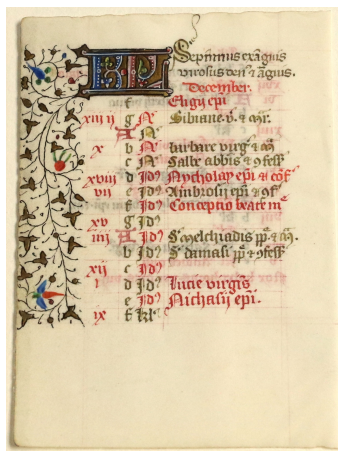 KL Septimus exāguis
virosus den' ut āguis.
December.
f Eligij epi
xiii ij g N' Bibiane v. & mr.
A N'
x b N' Barbare virg' & m̄
c N' Sabbe abbis & 9fess'
xviii d Id' Nycholay epi & cōf'
vii e Id' Ambrosij epi & 9f'
f Id' Conceptio beate m̄e
xv g Id'
iiii A Id' S' melchiadis pp̄ & m̄.
b Id' S' damasi pp̄ & 9fess'
xii c Id'
i d Id' Lucie virgīs
e Id' Nichasij epi.
ix f kl'